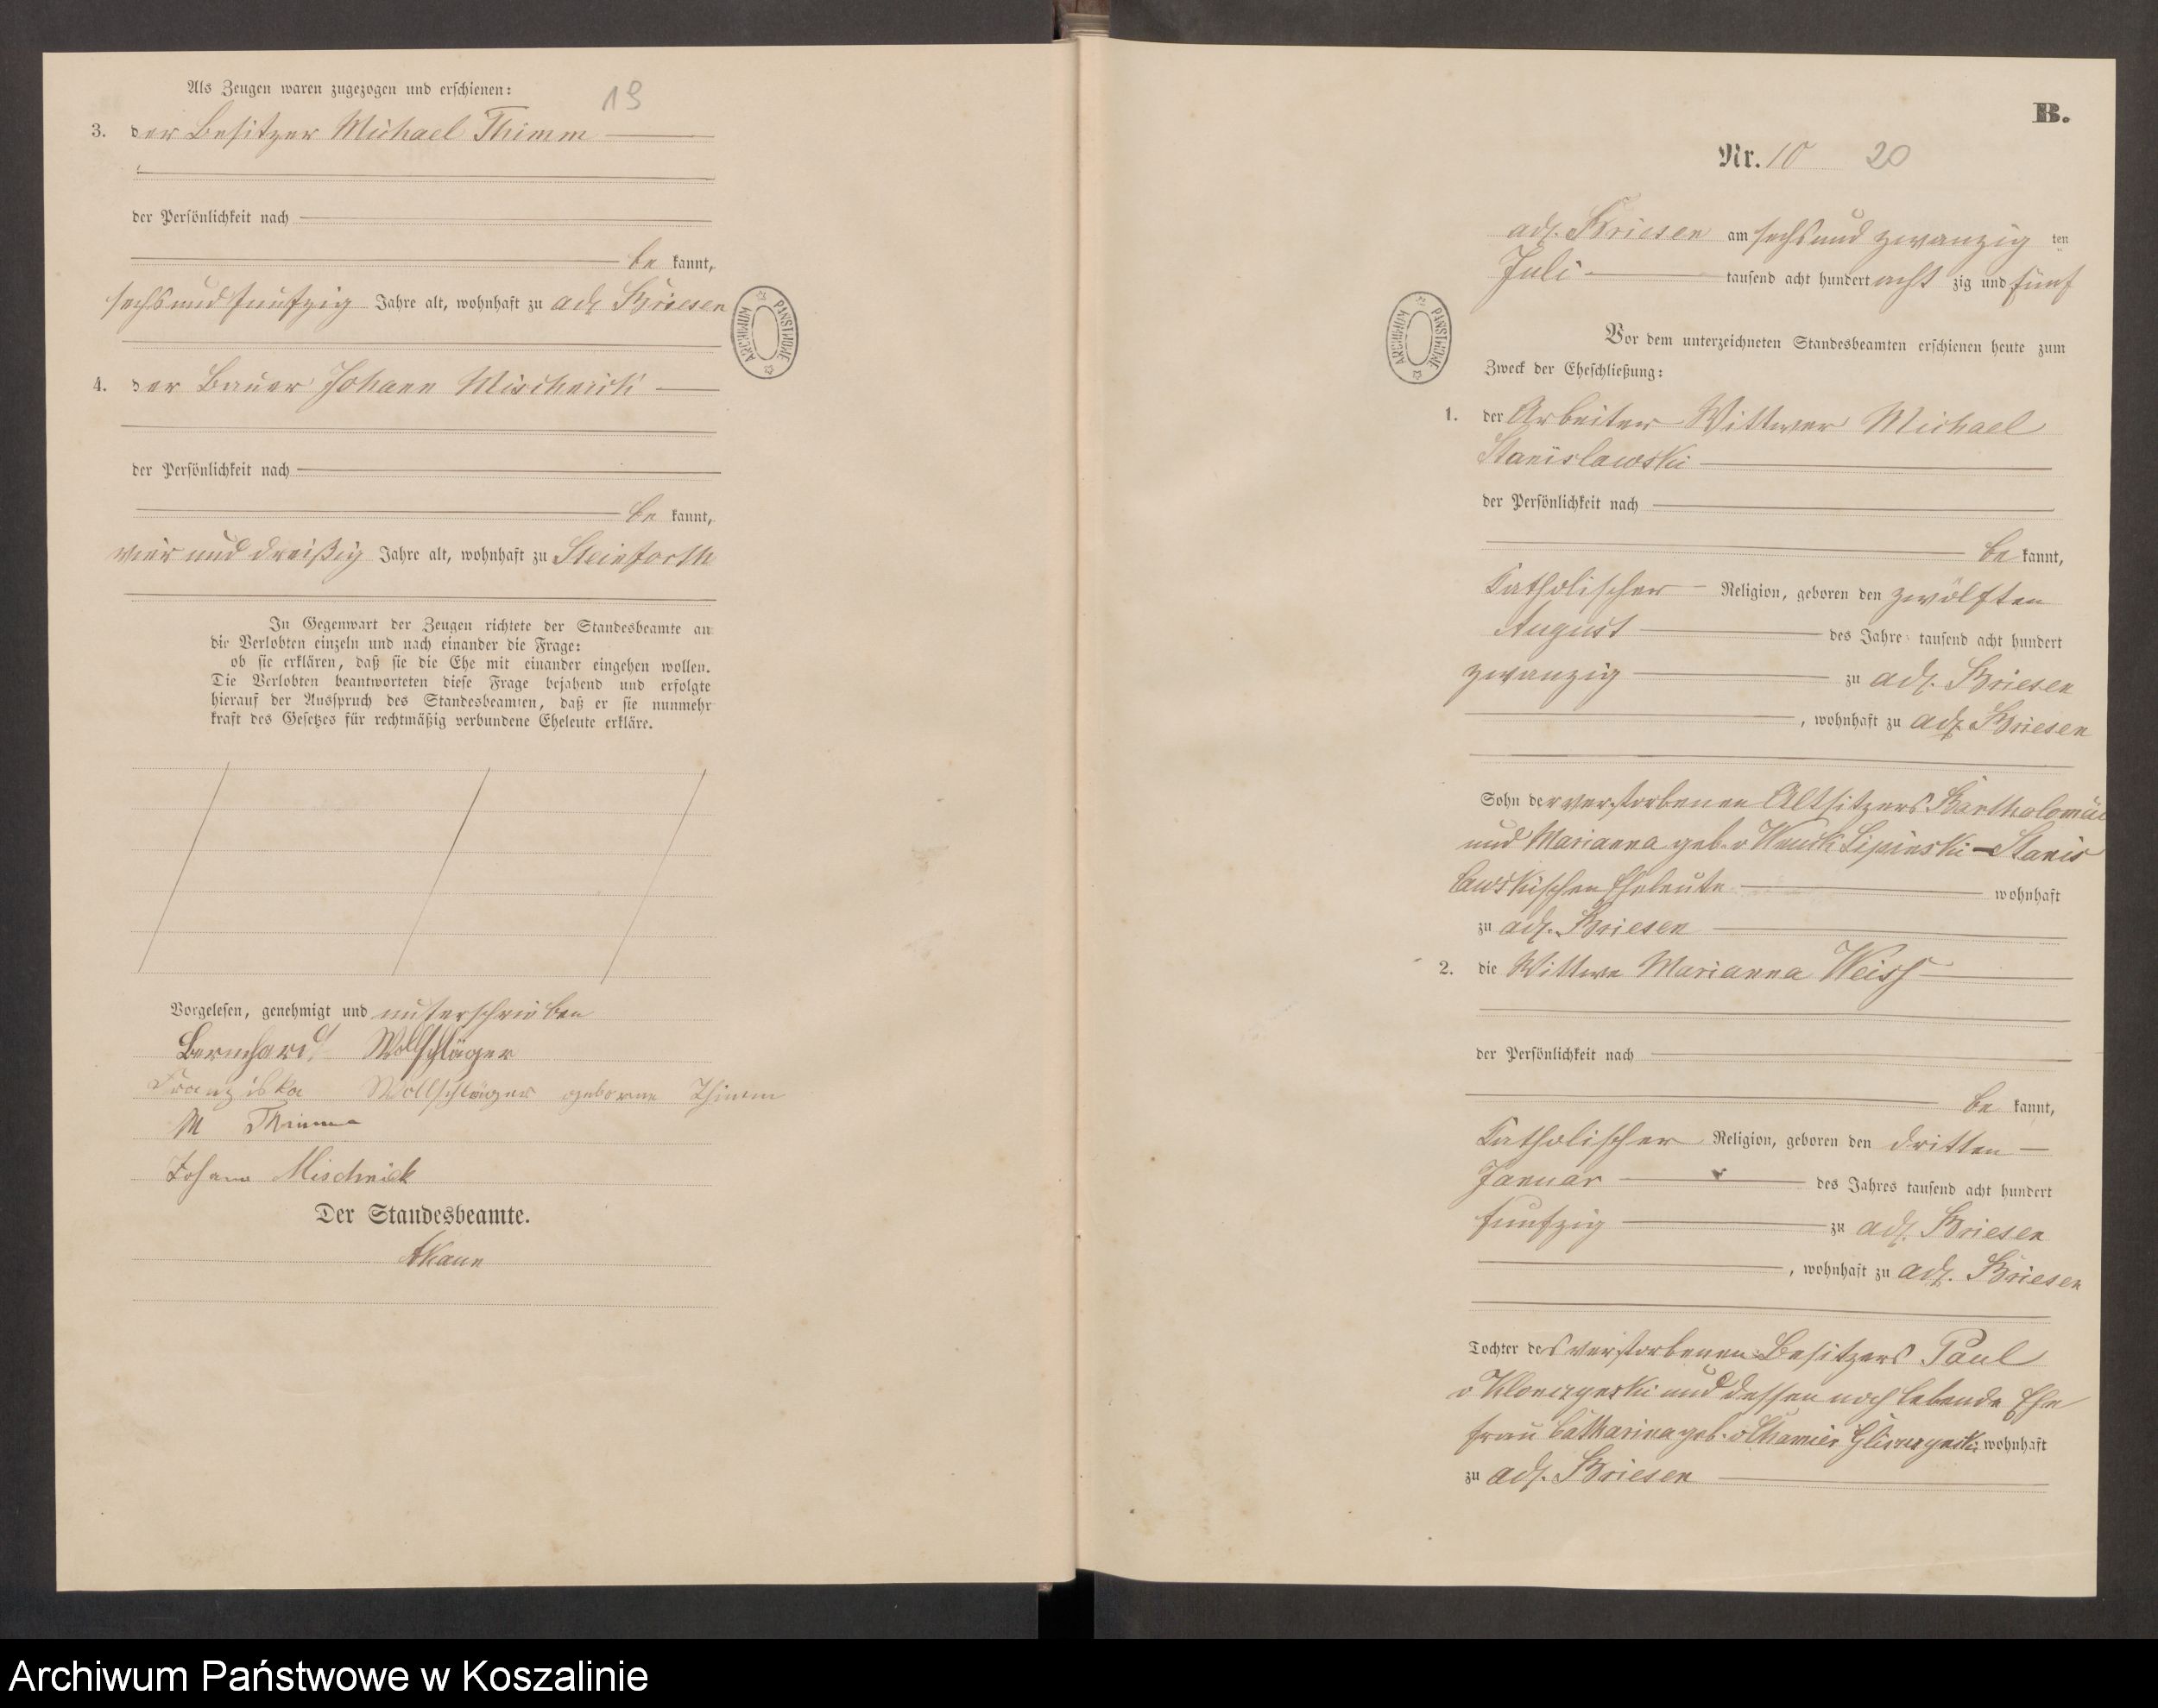 Als Zeugen waren zugezogen und erschienen:
19
3. der Besitzer Michael Thimm
der Persönlichkeit nach
be kannt,
sechsundfünfzig Jahre alt, wohnhaft zu adl Briesen
4. der Bauer Johann Mischnick
der Persönlichkeit nach
be kannt,
vier und dreißig Jahre alt, wohnhaft zu Steinforth
In Gegenwart der Zeugen richtete der Standesbeamte an
die Verlobten einzeln und nach einander die Frage:
ob sie erklären, daß sie die Ehe mit einander eingehen wollen.
Die Verlobten beantworteten diese Frage bejahend und erfolgte
hierauf der Ausspruch des Standesbeamten, daß er sie nunmehr
kraft des Gesetzes für rechtmäßig verbundene Eheleute erkläre.
Vorgelesen, genehmigt und unterschrieben
Bernhard Wollschläger
Franziska Wollschläger geborne Thimm
M Thimm
Johann Mischnick
Der Standesbeamte.
ARCHIWUM PAŃSTWOWE
B.
Nr. 10 20
adl. Briesen am sechsund zwanzig ten
Juli tausend acht hundert acht zig und fünf
ARCHIWUM PAŃSTWOWE
Vor dem unterzeichneten Standesbeamten erschienen heute zum
Zweck der Eheschließung:
1. der Arbeiter Wittwer Michael
Stanislawski
der Persönlichkeit nach
be kannt,
Katholischer Religion, geboren den zwölften
August des Jahres tausend acht hundert
zwanzig zu adl. Briesen
, wohnhaft zu adl. Briesen
Sohn der verstorbenen Altsitzers Bartholomäe
und Marianna geb. v Lipinski-Stanis
lawskischen Eheleute wohnhaft
zu adl. Briesen
2. die Wittwe Marianna Weiss
der Persönlichkeit nach
be kannt,
Katholischer Religion, geboren den dritten
Januar des Jahres tausend acht hundert
fünfzig zu adl. Briesen
, wohnhaft zu adl. Briesen
Tochter des verstorbenen Besitzers Paul
v Klonczynski und dessen noch lebende Ehe
frau Catharina geb. wohnhaft
zu adl. Briesen
Archiwum Państwowe w Koszalinie